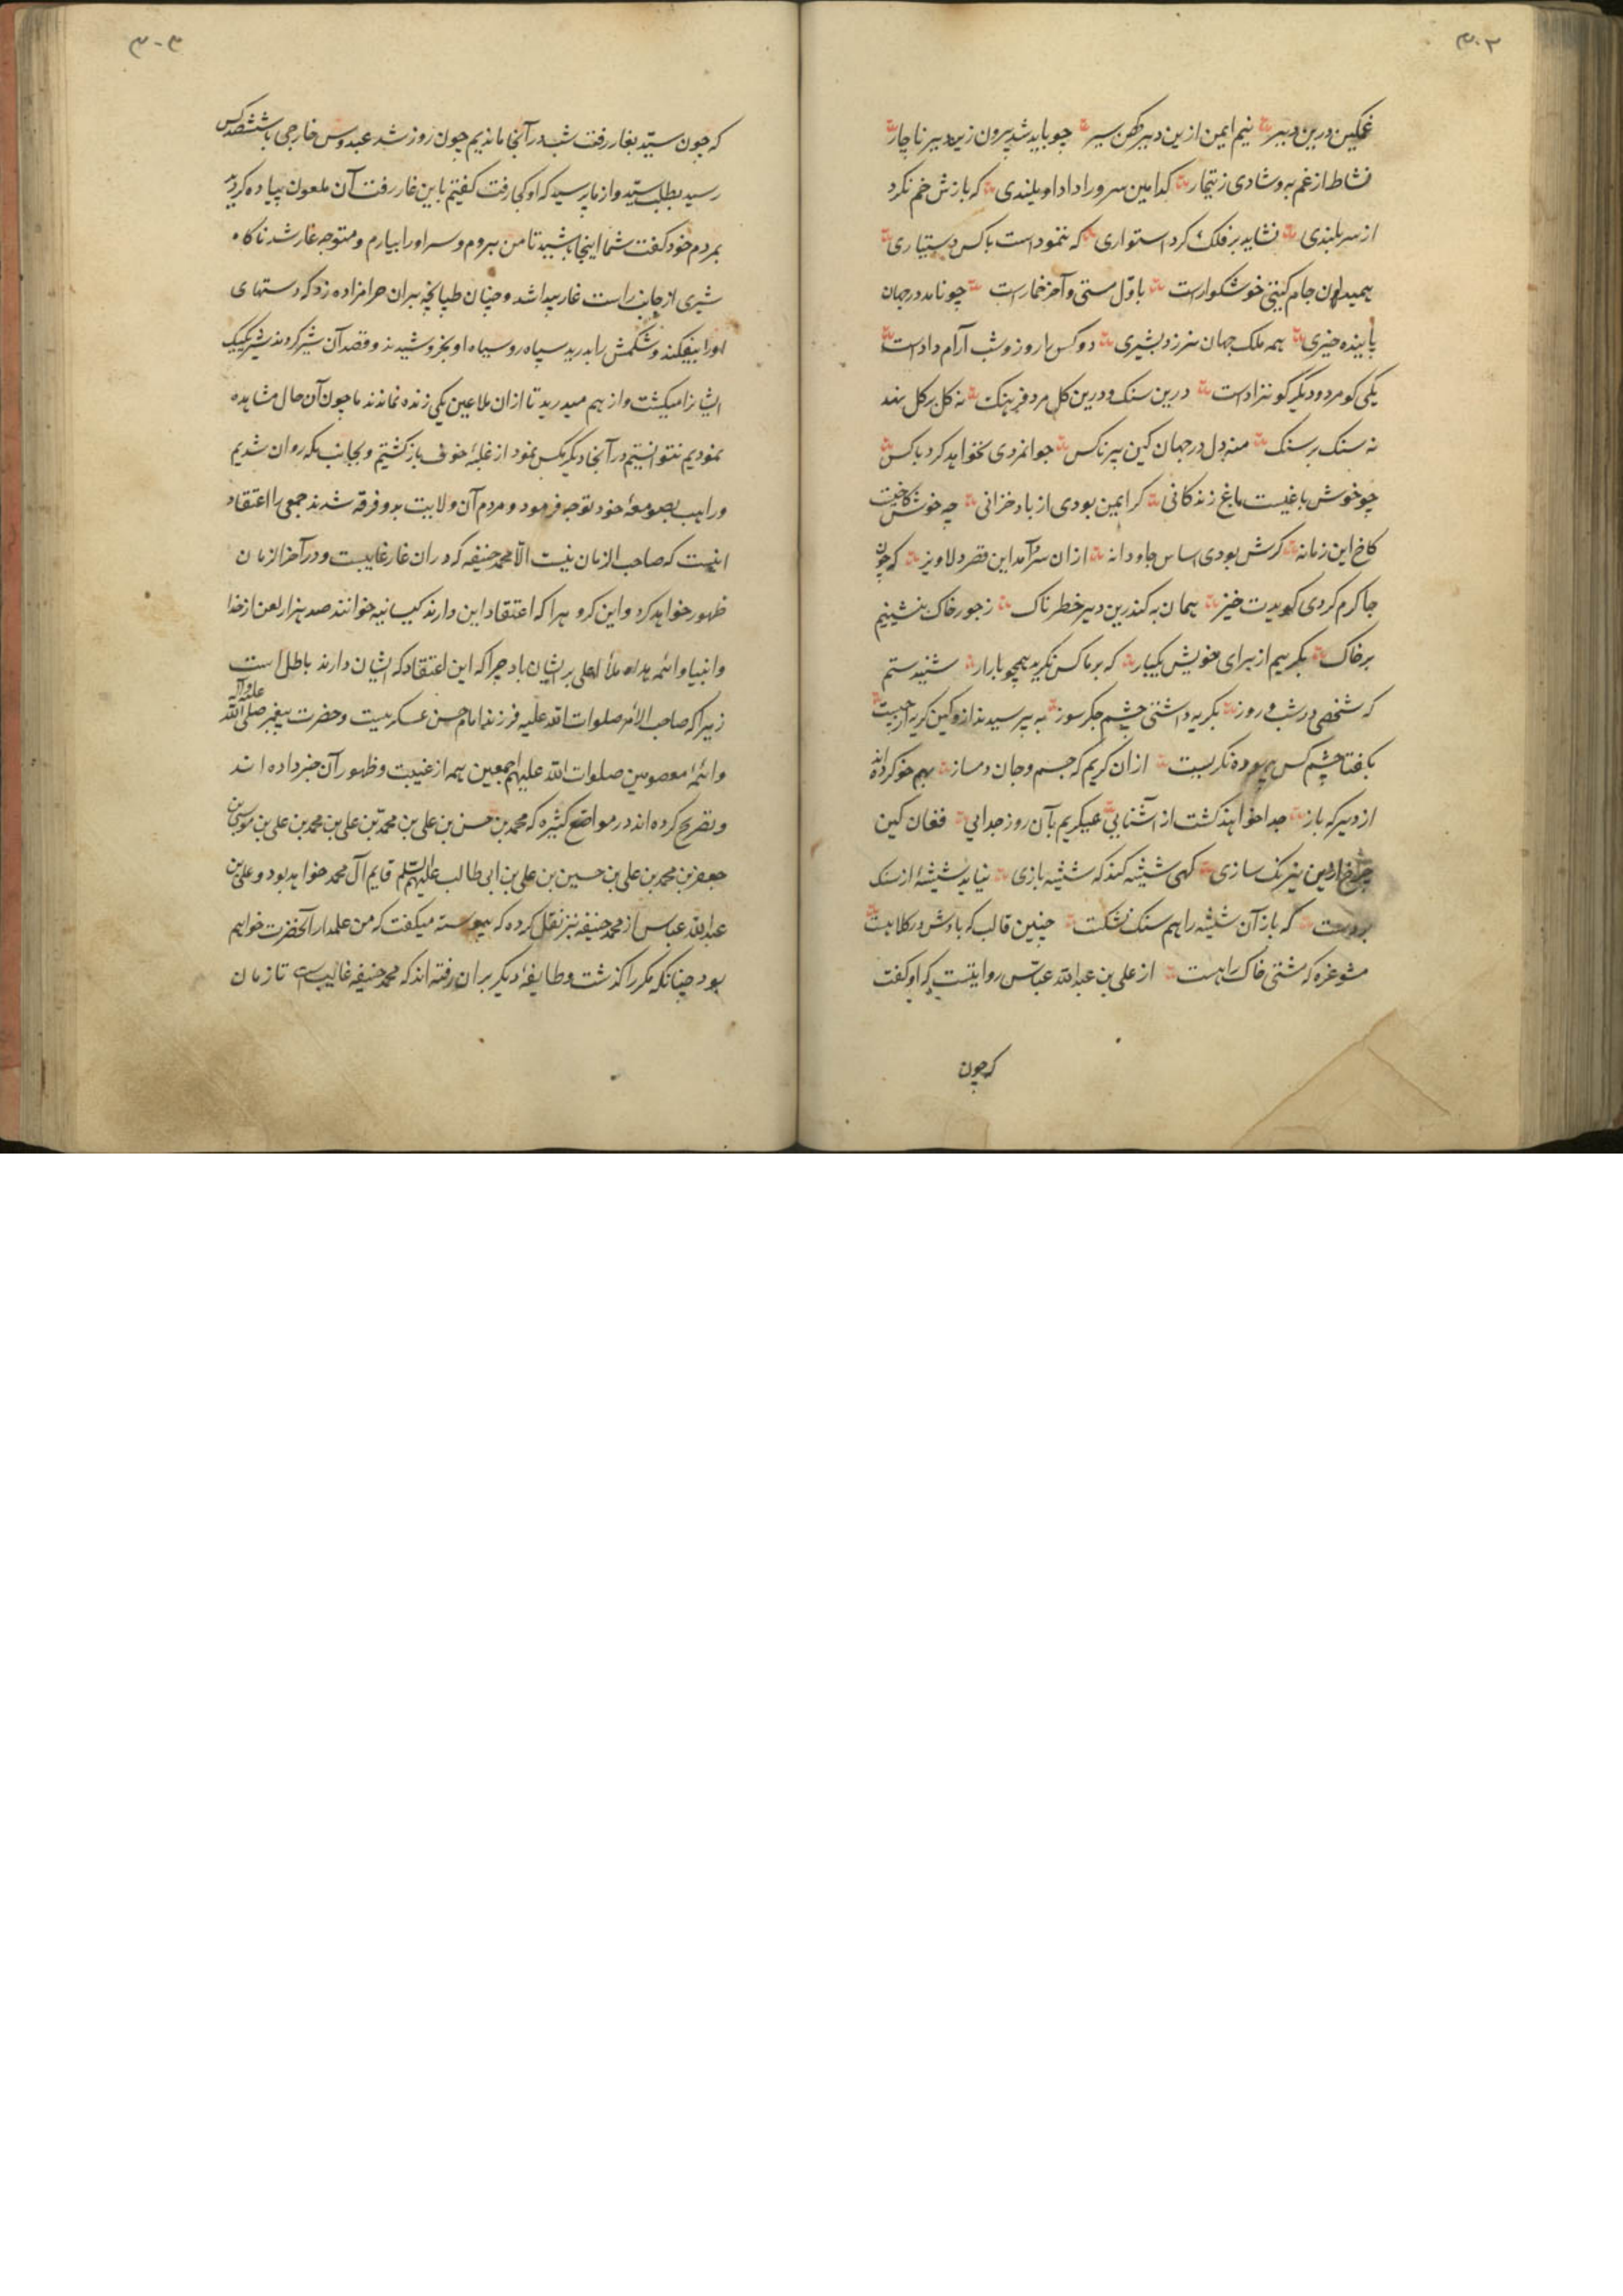 ۳۰۲
غمگین درین دیر نیم ایمن ازین دیر کهن سیر چو باید شد برون زین دیر ناچار
نشاط از غم به و شادی ز تیمار کدامین سرو را داد او بلندی که بازش خم نکرد
از سربلندی نشاید بر فلک کرد استواری که ننمود است با کس دستیاری
همیدون جام گیتی خوشگوارست باول مستی و آخر خمارست چو نامد در جهان
پاینده چیزی همه ملک جهان نرزد بشیزی دو کس را روز و شب آرام دادست
یکی کو مرد و دیگر کو نزادست درین سنک و درین کل مرد فرهنک نه کل بر کل نهد
نه سنک بر سنک منه دل در جهان کین پیر ناکس جوانمردی نخواهد کرد با کس
چو خوش باغیست باغ زندکانی کر ایمن بودی از باد خزانی چه خوش کاخیست
کاخ این زمانه کرش بودی اساس جاودانه ازان سرد آمد این قصر دلاویز که چون
جا کرم کردی کویدت خیز همان به کندرین دیر خطرناک ز جور خاک بنشینیم
بر خاک بکرییم از برای خویش یکبار که بر ما کس نکرید همچو ما زار شنیدستم
که شخصی در شب و روز بکریه داشتی چشم جکرسوز بپرسیدند ازو کین کریه از چیست
بکفتا چشم کس بیهوده نکریست ازان کریم که جسم و جان دمساز بهم خو کرده اند
از دیر که باز جدا خواهند کشت از آشنایی همیکریم بآن روز جدایی فغان کین
چرخ از نیرنک سازی کهی شیشه کند که شیشه بازی نیاید شیشهٔ از سنک
بر دست که باز آن شیشه را هم سنک نشکست چنین قالب که بادش در کلاهست
مشو غره که مشتی خاک راهست از علی بن عبدالله عباس روایتست که او کفت
که چون
۳۰۳
که چون سید بغار رفت شب در آنجا ماندیم چون روز شد عبدوس خارجی با ششصد کس
رسید بطلب سید و از ما پرسید که او کجا رفت کفتیم باین غار رفت آن ملعون پیاده کردید
بمردم خود کفت شما اینجا باشید تا من بروم و سر او را بیارم و متوجه غار شد ناکاه
شیری از جانب راست غار پیدا شد و چنان طپانچه بران حرامزاده زد که دستهای
او را بیفکند و شکمش را بدرید سپاه روسیاه او بخروشیدند و قصد آن شیر کردند شیر یکیک
ایشانرا میکشت و از هم میدرید تا ازان ملاعین یکی زنده نماندند ما چون آن حال مشاهده
نمودیم نتوانستیم در آنجا دیکر مکس نمود از غلبهٔ خوف بازکشتیم و بجانب مکه روان شدیم
و راهب بصومعهٔ خود توجه فرمود و مردم آن ولایت بدو فرقه شدند جمعی را اعتقاد
اینست که صاحب الزمان نیست الا محمد حنیفه که دران غار غایبست و در آخرالزمان
ظهور خواهد کرد و این کروه را که اعتقاد این دارند کیسانیه خوانند صد هزار لعن از خدا
و انبیا و ائمه هداه ملأ اعلی بر ایشان باد چرا که این اعتقاد که ایشان دارند باطل است
زیرا که صاحب الامر صلوات الله علیه فرزند امام حسن عسکریست و حضرت پیغمبر صلی الله علیه و آله
و ائمهٔ معصومین صلوات الله علیهم اجمعین همه از غیبت و ظهور آن خبر داده اند
و تصریح کرده اند در مواضع کثیره که محمد بن حسن بن علی بن محمد بن علی بن محمد بن علی بن موسی بن
جعفر بن محمد بن علی بن حسین بن علی بن ابی طالب علیهم السلم قایم آل محمد خواهد بود و علی بن
عبدالله عباس از محمد حنیفه نیز نقل کرده که پیوسته میکفت که من علمدار آنحضرت خواهم
بود چنانکه مکرر اکذشت و طایفهٔ دیکر بران رفته اند که محمد حنیفه غایب است تا زمان